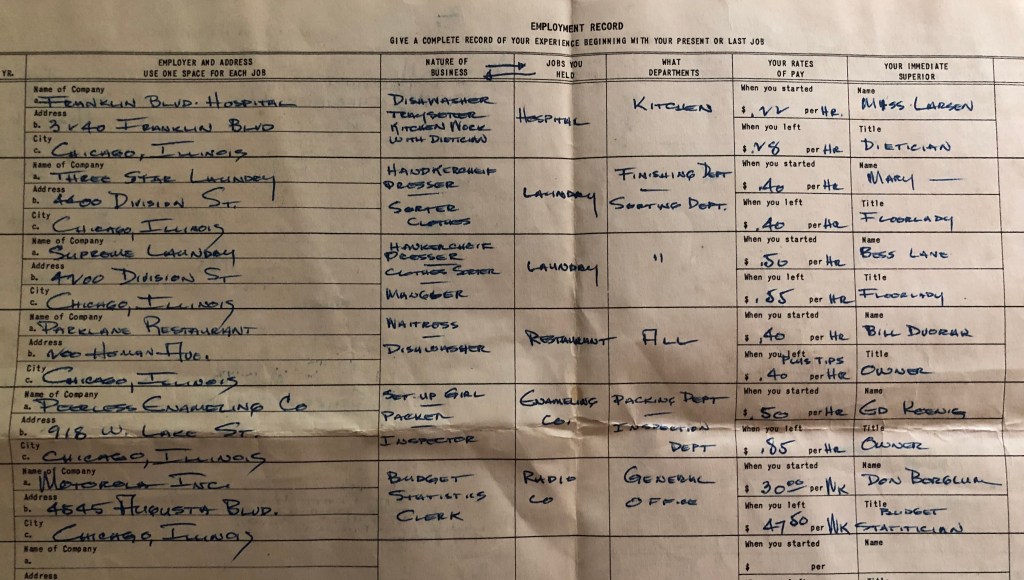 EMPLOYMENT RECORD
GIVE A COMPLETE RECORD OF YOUR EXPERIENCE BEGINNING WITH YOUR PRESENT OR LAST JOB
YR.
EMPLOYER AND ADDRESS
USE ONE SPACE FOR EACH JOB
NATURE OF
BUSINESS
JOBS YOU
HELD
WHAT
DEPARTMENTS
YOUR RATES
OF PAY
YOUR IMMEDIATE
SUPERIOR
Name of Company
a. FRANKLIN BLVD. HOSPITAL
Address
b. 3240 FRANKLIN BLVD
City
c. CHICAGO, ILLINOIS
DISHWASHER
TRAYSETTER
KITCHEN WORK
WITH DIETICIAN
HOSPITAL
KITCHEN
When you started
$ .22 per HR.
When you left
$ .28 per HR
Name
MISS. LARSEN
Title
DIETICIAN
Name of Company
a. THREE STAR LAUNDRY
Address
b. 4400 DIVISION ST.
City
c. CHICAGO, ILLINOIS
HANDKERCHEIF
PRESSER
SORTER
CLOTHES
LAUNDRY
FINISHING DEPT
SORTING DEPT.
When you started
$ .40 per HR
When you left
$ .40 per HR
Name
MARY —
Title
FLOORLADY
Name of Company
a. SUPREME LAUNDRY
Address
b. 4200 DIVISION ST
City
c. CHICAGO, ILLINOIS
HANKERCHEIF
PRESSER
CLOTHES SORTER
MANGLER
LAUNDRY
"
When you started
$ .50 per HR
When you left
$ .55 per HR
Name
BESS LANE
Title
FLOORLADY
Name of Company
a. PARKLANE RESTAURANT
Address
b. 200 HOMAN AVE.
City
c. CHICAGO, ILLINOIS
WAITRESS
DISHWASHER
RESTAURANT
ALL
When you started
$ .40 per HR
When you left
PLUS TIPS
$ .40 per HR
Name
BILL DVORAK
Title
OWNER
Name of Company
a. PEERLESS ENAMELING CO
Address
b. 918 W. LAKE ST.
City
c. CHICAGO, ILLINOIS
SET-UP GIRL
PACKER
INSPECTOR
ENAMELING
CO.
PACKING DEPT
INSPECTION
DEPT
When you started
$ .50 per HR
When you left
$ .85 per HR
Name
ED KOENIG
Title
OWNER
Name of Company
a. MOTOROLA INC.
Address
b. 4545 AUGUSTA BLVD.
City
c. CHICAGO, ILLINOIS
BUDGET
STATISTICS
CLERK
RADIO
CO
GENERAL
OFFICE
When you started
$ 30 00 per WK
When you left
$ 47 50 per WK
Name
DON BORGLUM
Title
BUDGET
STATITICIAN
Name of Company
a.
Address
When you started
$ per
Name